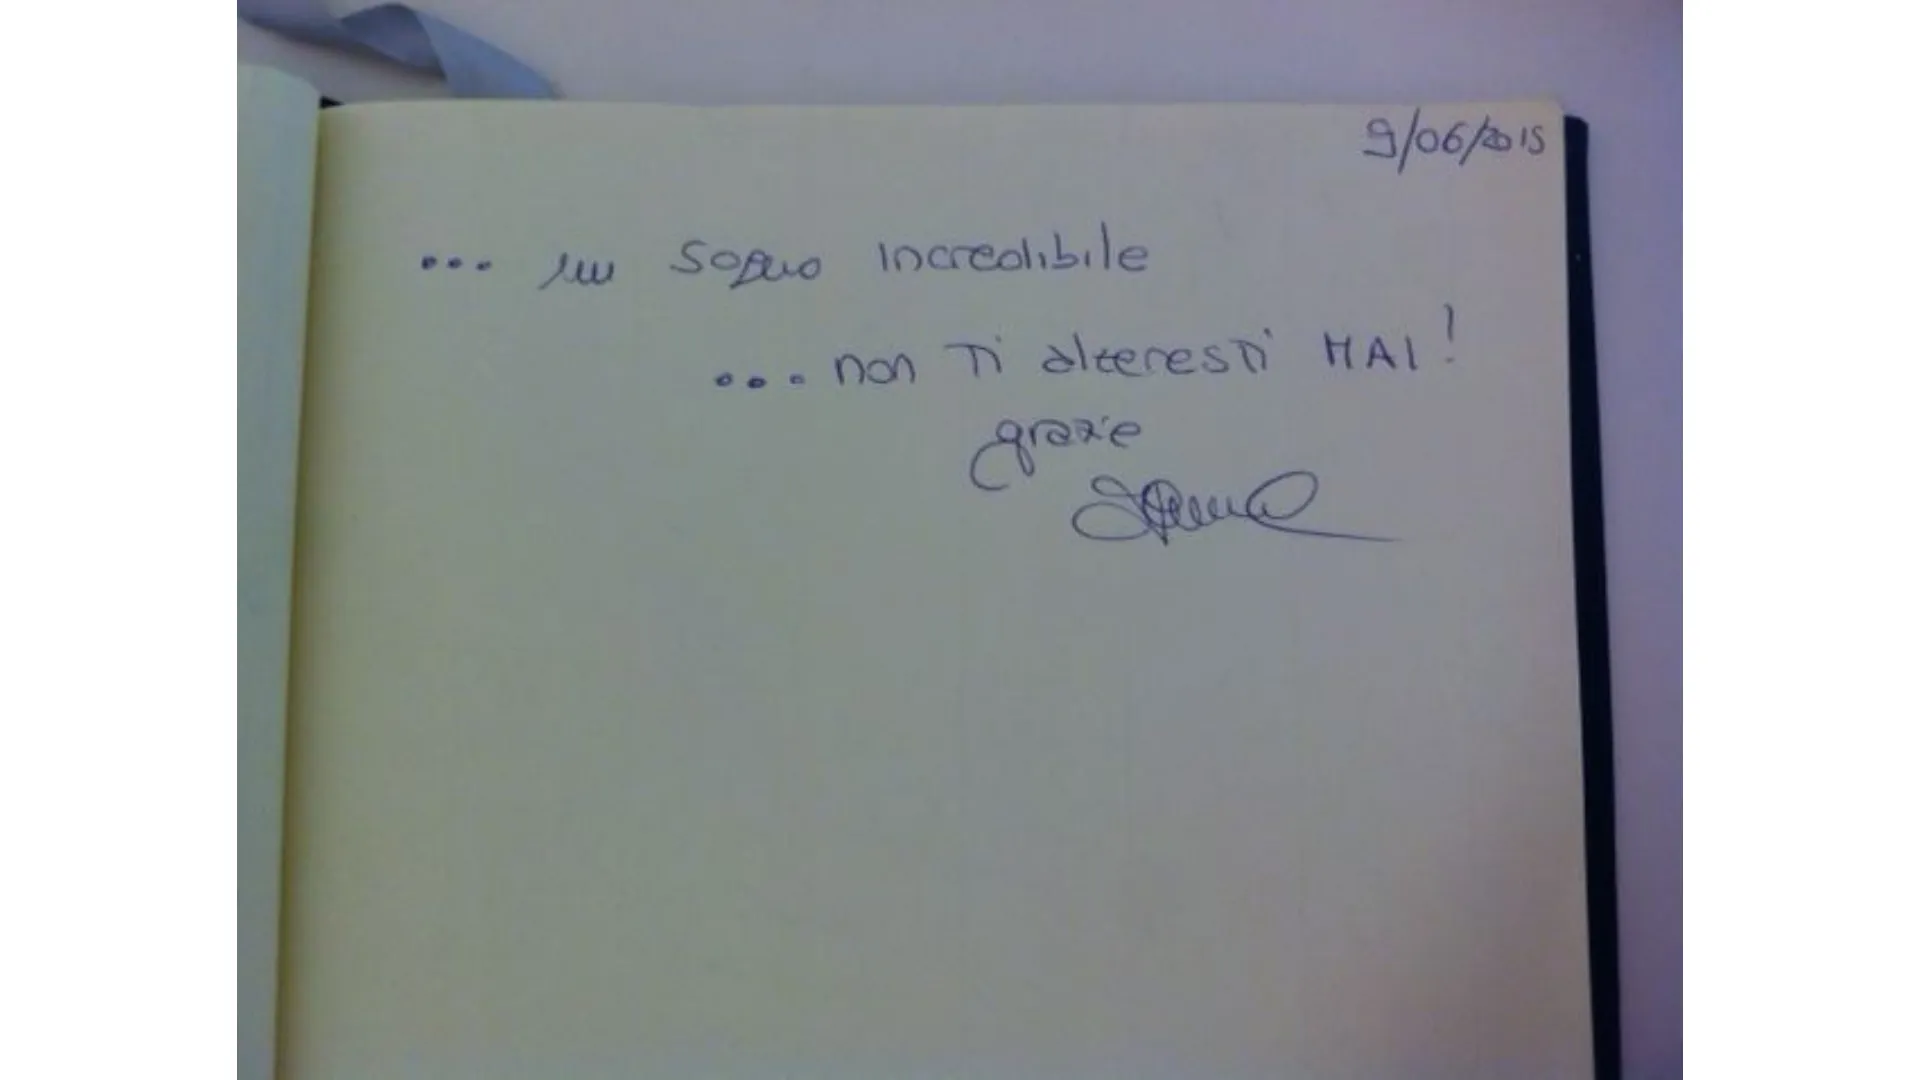 9/06/2015
... un sogno incredibile
... non Ti alzeresti MAI!
grazie